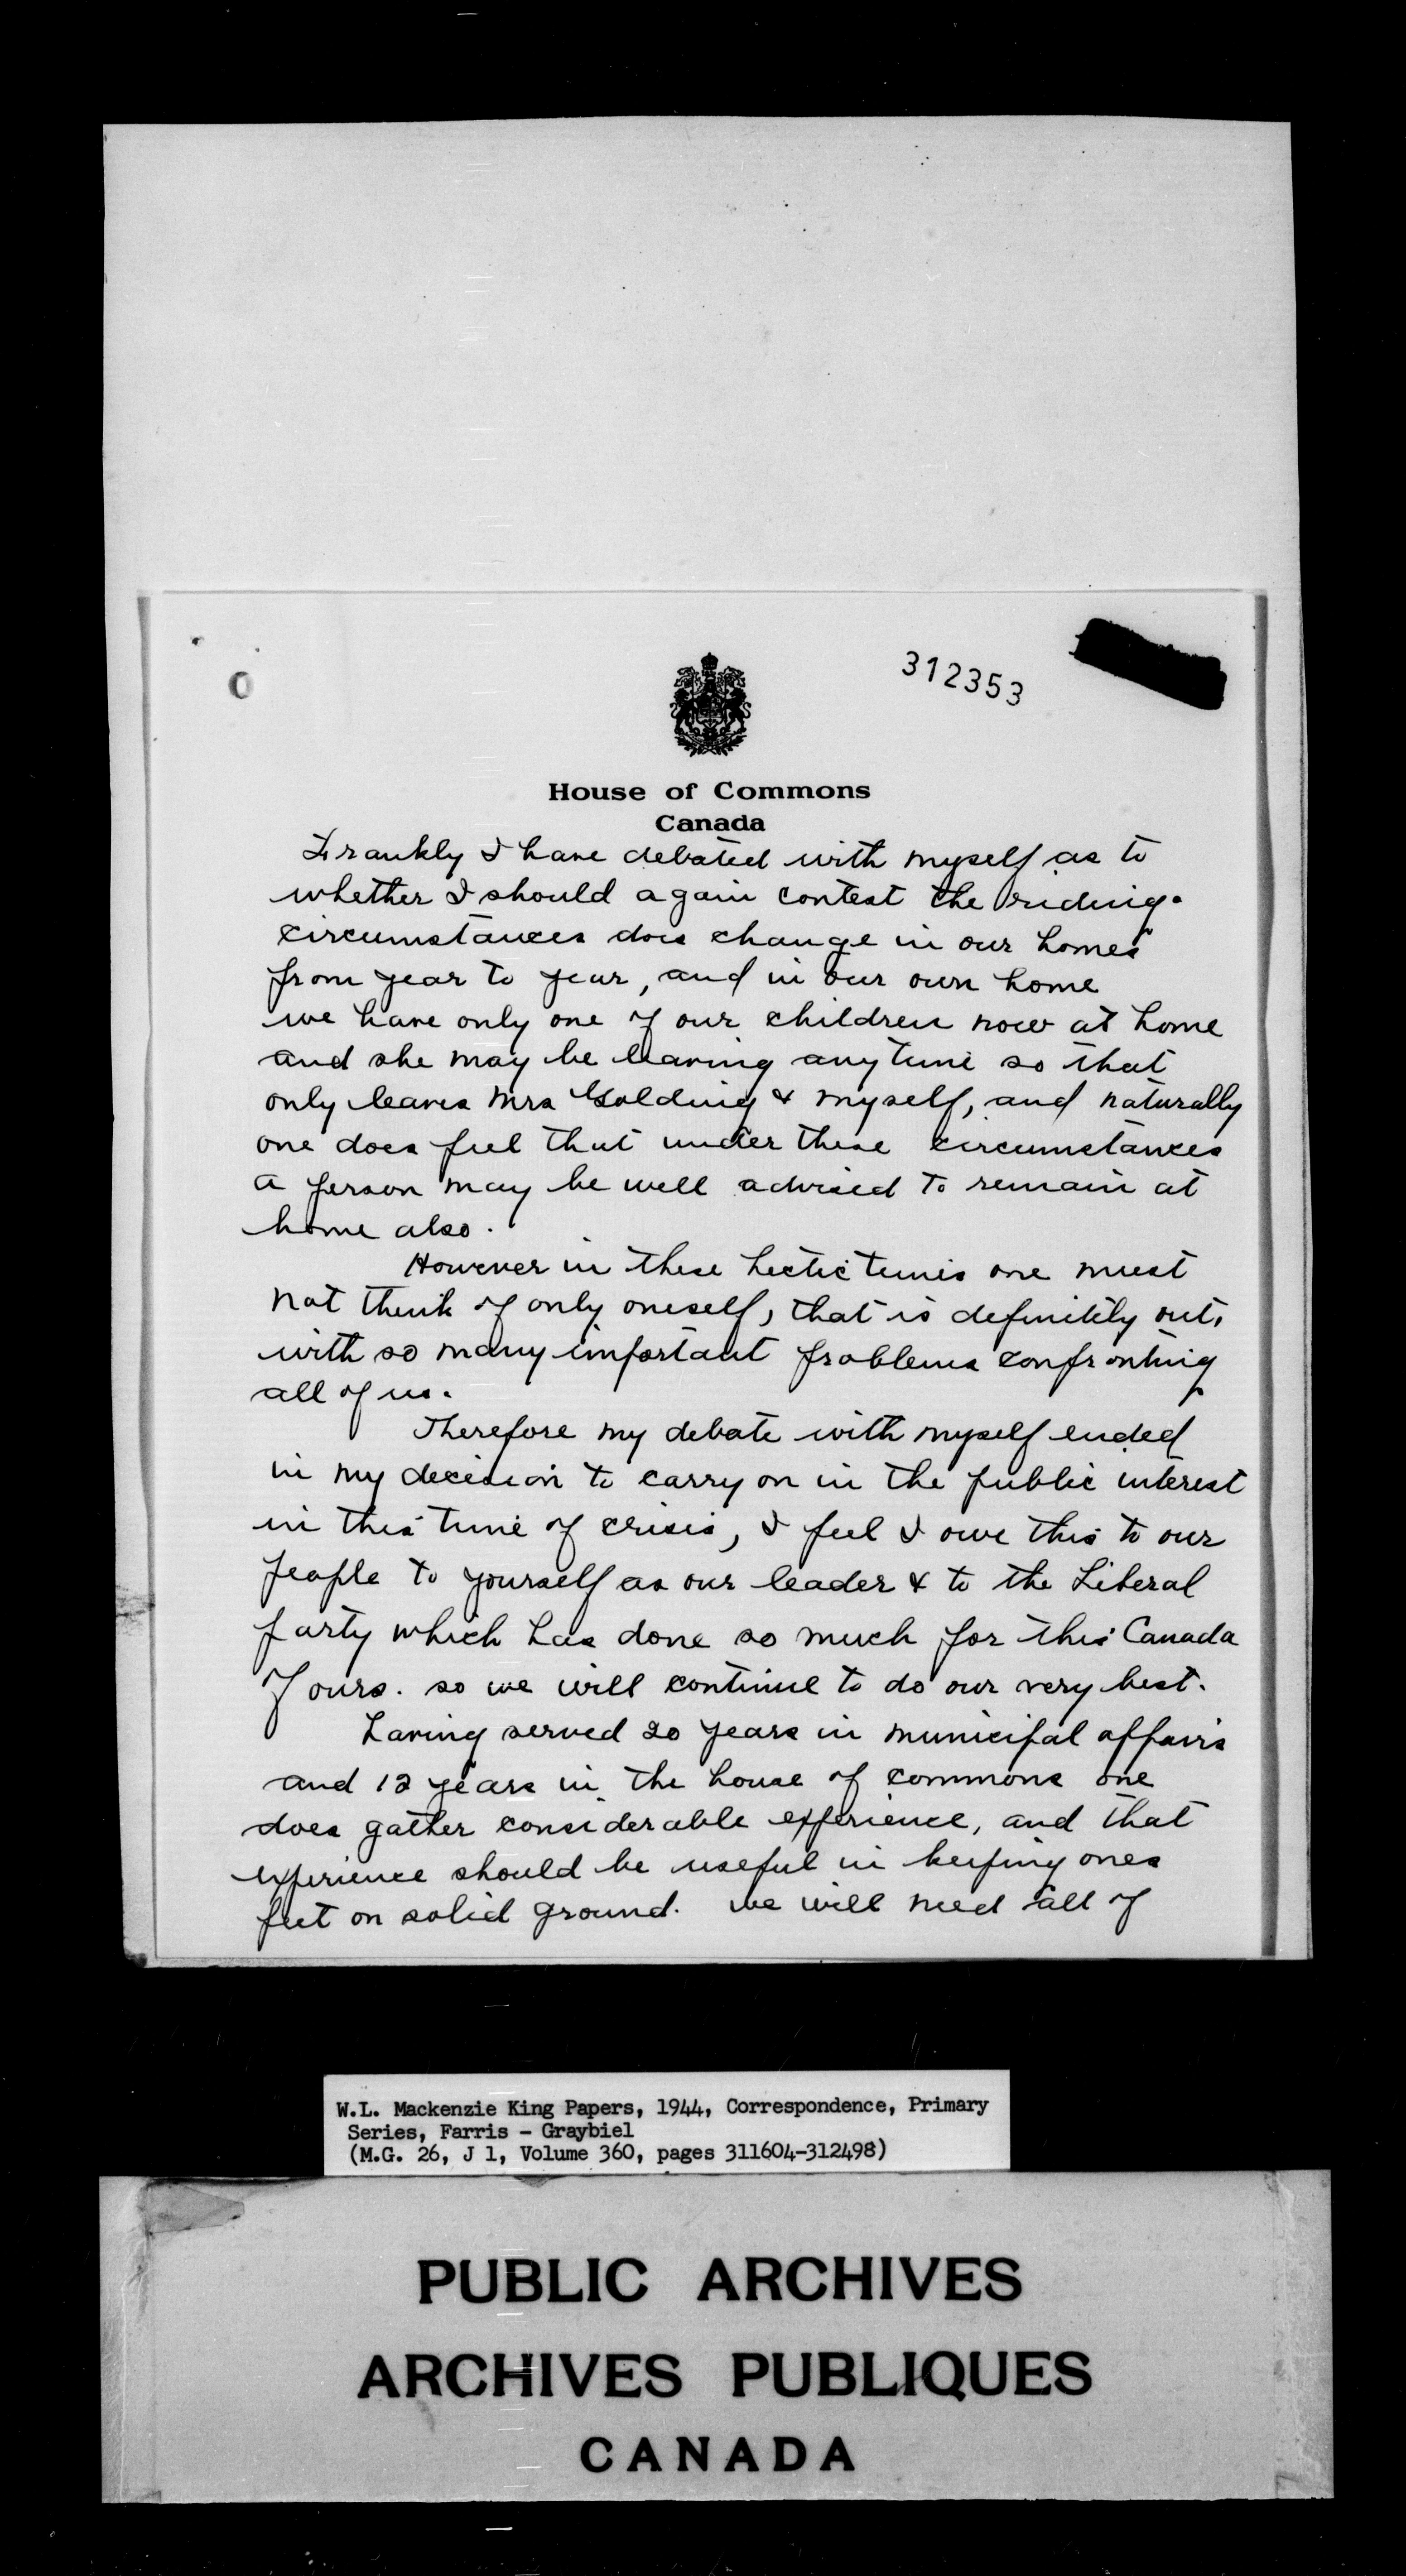 312353
House of Commons
Canada
Frankly I have debated with myself as to
whether I should again contest the riding.
circumstances does change in our homes
from year to year, and in our own home
we have only one of our children now at home
and she may be leaving anytime so that
only leaves Mrs Golding & myself, and naturally
one does feel that under these circumstances
a person may be well advised to remain at
home also.
However in these hectic times one must
not think of only oneself, that is definitely out,
with so many important problems confronting
all of us.
Therefore my debate with myself ended
in my decision to carry on in the public interest
in this time of crisis, I feel I owe this to our
people to yourself as our leader & to the Liberal
party which has done so much for this Canada
of ours. so we will continue to do our very best.
having served 20 years in municipal affairs
and 12 years in the house of commons one
does gather considerable experience, and that
experience should be useful in keeping ones
feet on solid ground. we will need all of
W.L. Mackenzie King Papers, 1944, Correspondence, Primary
Series, Farris - Graybiel
(M.G. 26, J 1, Volume 360, pages 311604-312498)
PUBLIC ARCHIVES
ARCHIVES PUBLIQUES
CANADA